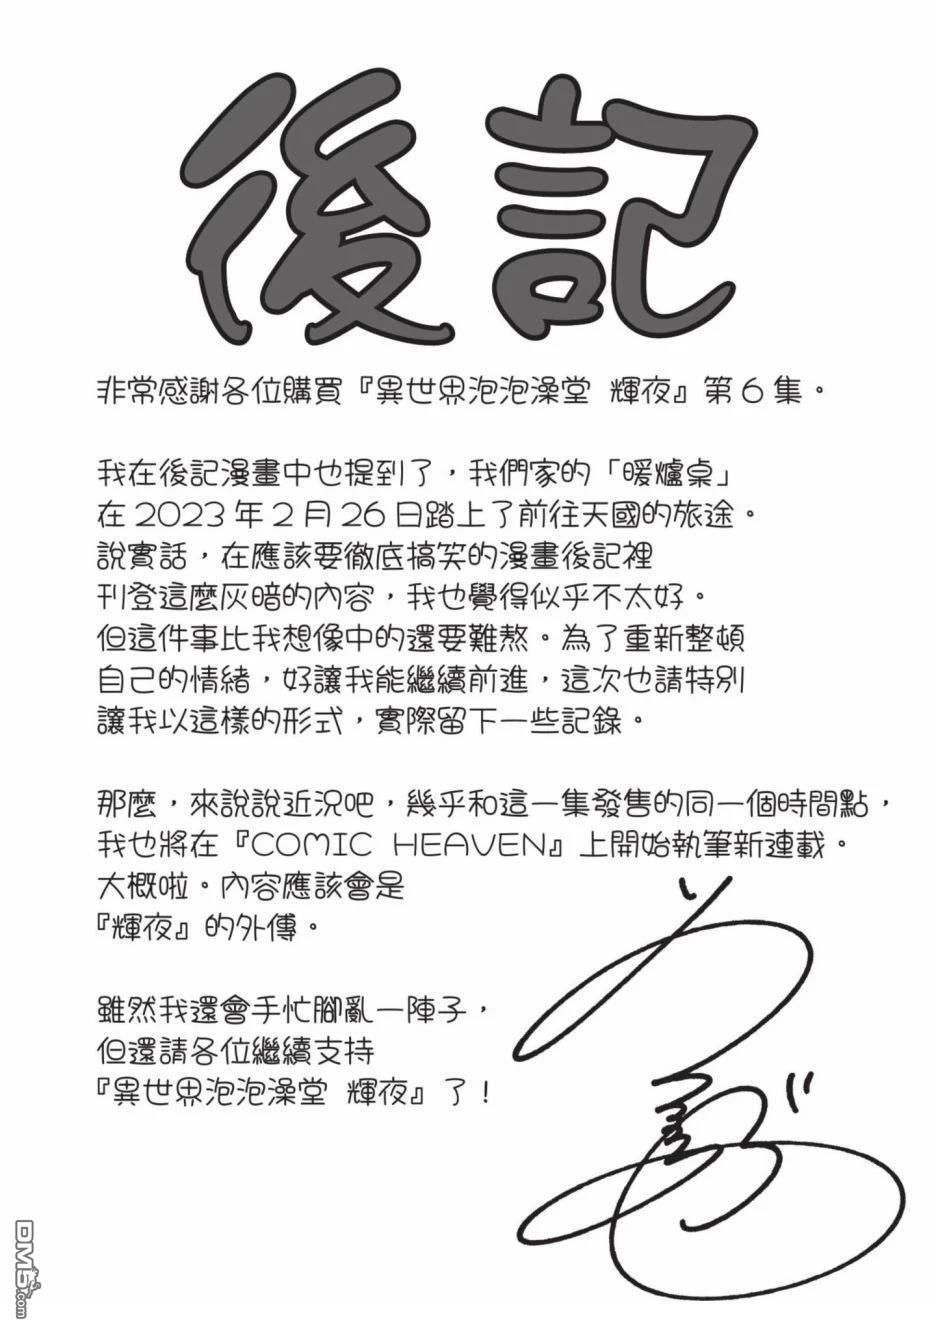 後記
非常感謝各位購買『異世界泡泡澡堂 輝夜』第6集。
我在後記漫畫中也提到了，我們家的「暖爐桌」
在2023年2月26日踏上了前往天國的旅途。
說實話，在應該要徹底搞笑的漫畫後記裡
刊登這麼灰暗的內容，我也覺得似乎不太好。
但這件事比我想像中的還要難熬。為了重新整頓
自己的情緒，好讓我能繼續前進，這次也請特別
讓我以這樣的形式，實際留下一些記錄。
那麼，來說說近況吧，幾乎和這一集發售的同一個時間點，
我也將在『COMIC HEAVEN』上開始執筆新連載。
大概啦。內容應該會是
『輝夜』的外傳。
雖然我還會手忙腳亂一陣子，
但還請各位繼續支持
『異世界泡泡澡堂 輝夜』了！
DM5.com